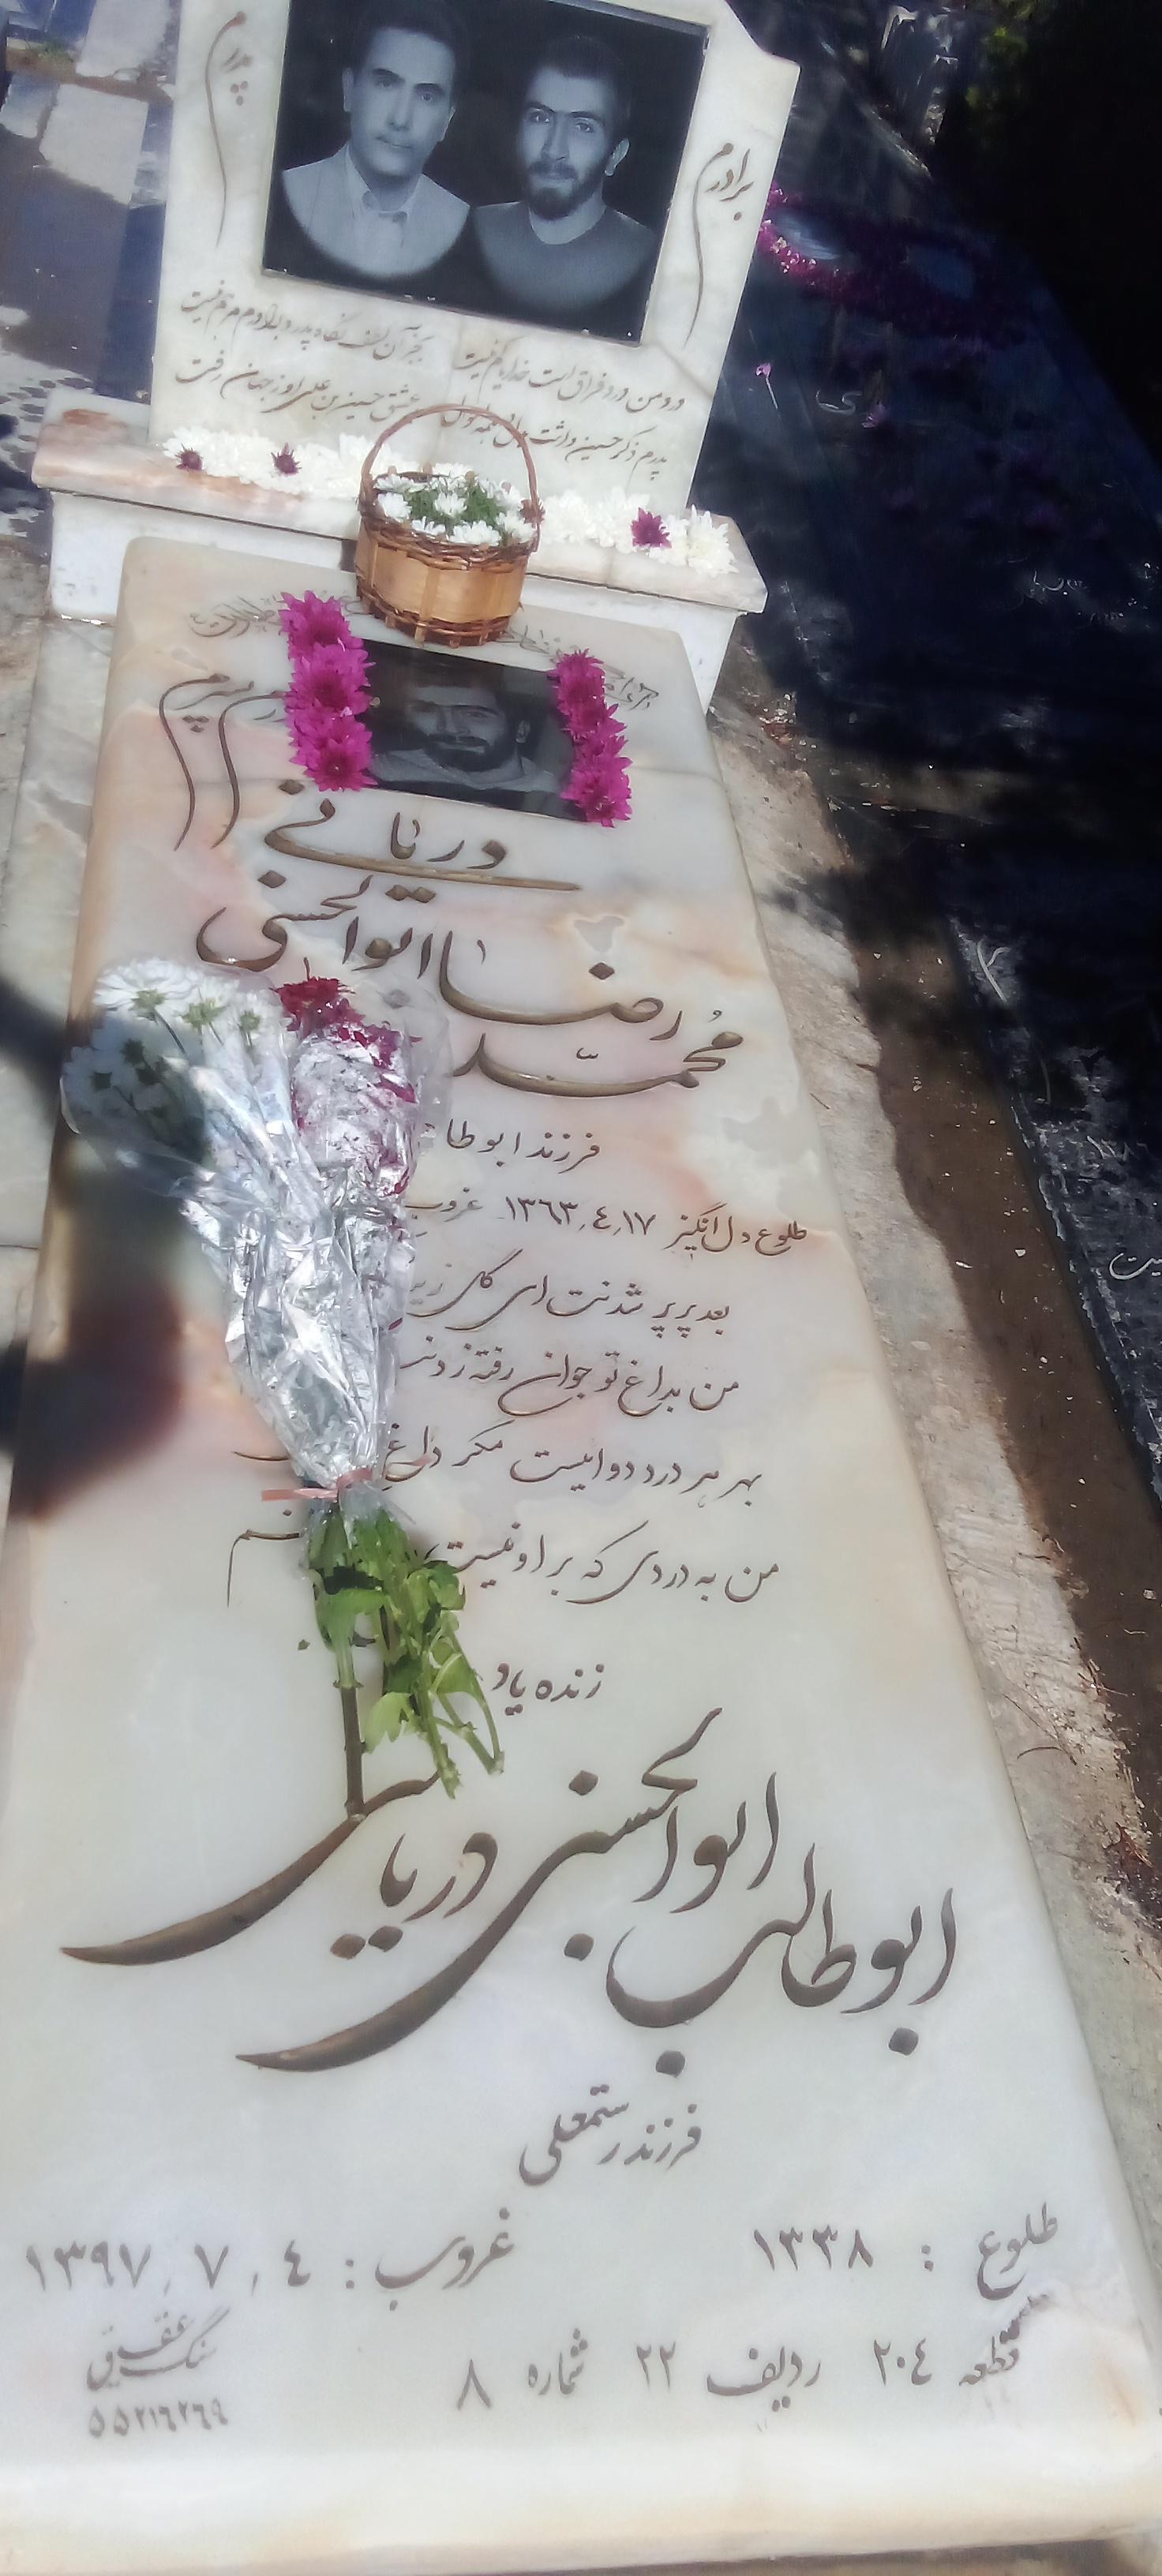 پدرم
برادرم
درد من درد فراق است خدایا کم نیست
بجز آن لطف نگاه پدر و برادرم مرهم نیست
پدرم ذکر حسین داشت
عشق حسین بن علی او ز جهان رفت
پسرم
دریانی
محمد رضا ابوالحسنی
فرزند ابوطا
طلوع دل انگیز ۱۳۶۳٫۴٫۱۷ غروب
بعد پرپر شدنت ای گل
من بداغ تو جوان رفته ز دنیا
بهر هر درد دوایست مگر داغ
من به دردی که بر او نیست
زنده یاد
ابوطالب ابوالحسنی دریانی
فرزند رستمعلی
طلوع : ۱۳۳۸ غروب : ۱۳۹۷٫۷٫۴
قطعه ۲۰۴ ردیف ۲۲ شماره ۸
سنگ عقیق
۵۵۲۱۶۲۶۹